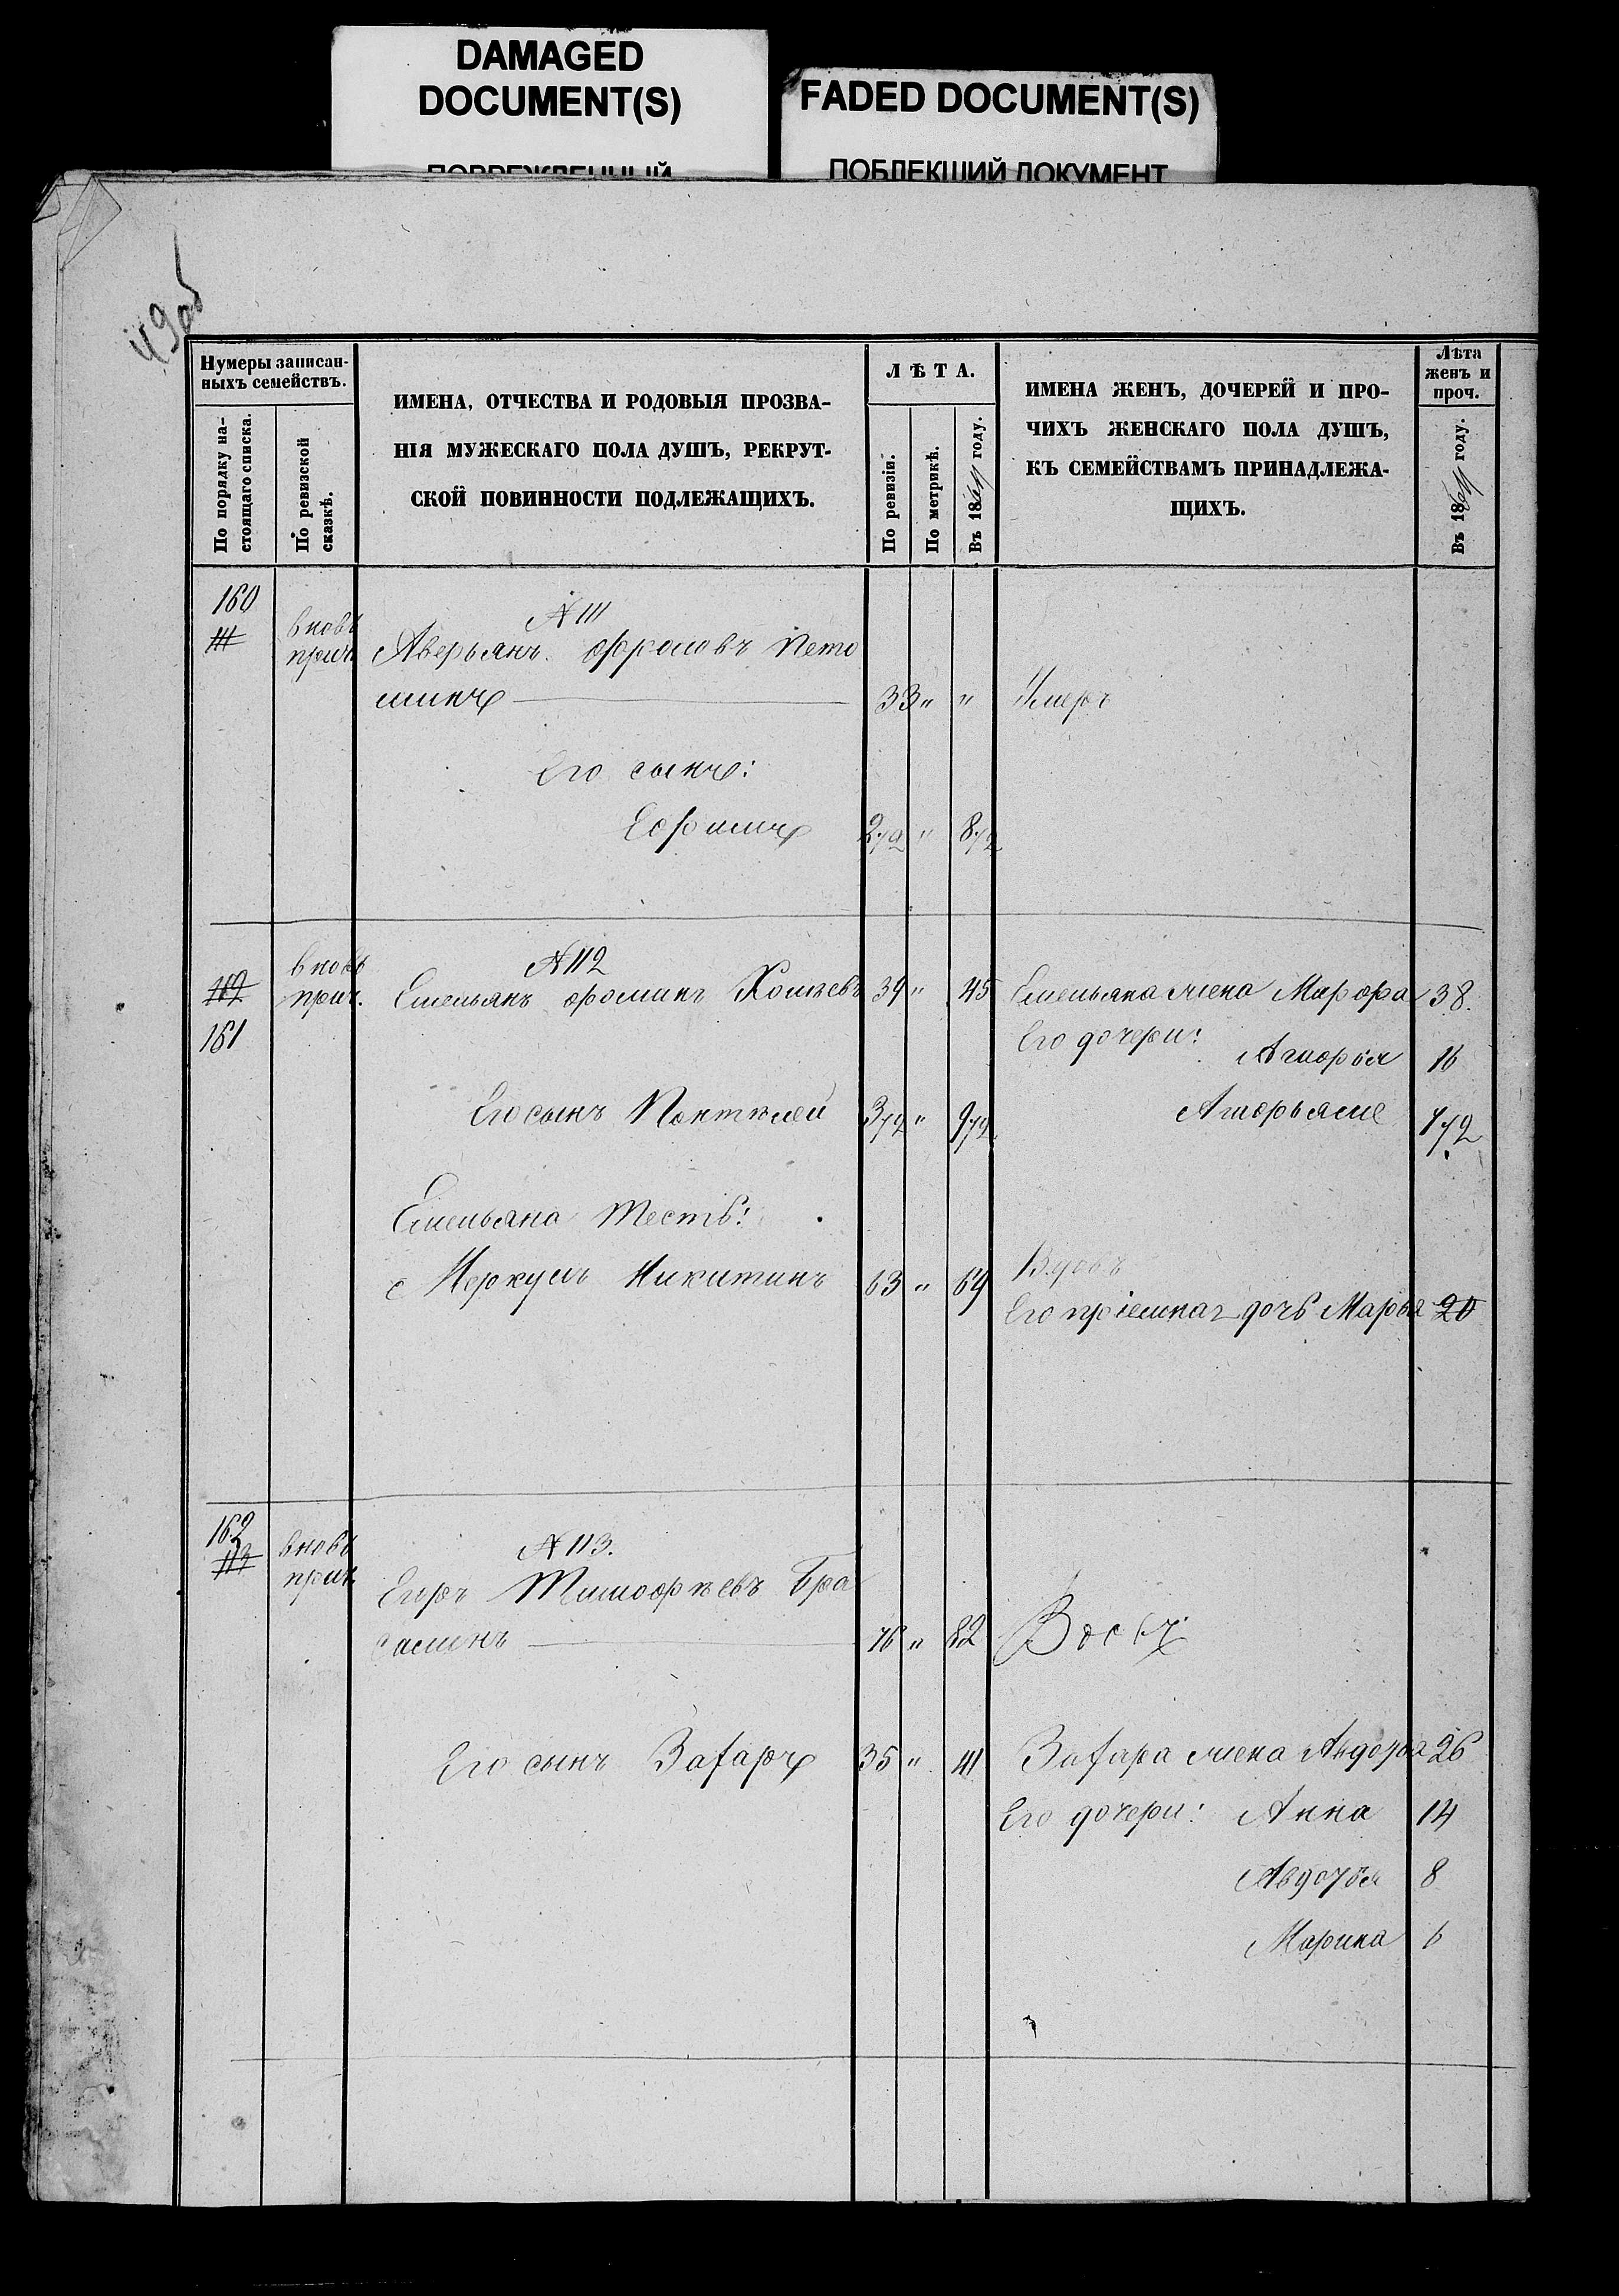 DAMAGED
DOCUMENT(S)
FADED DOCUMENT(S)
ПОВРЕЖДЕННЫЙ
ПОБЛЕКШИЙ ДОКУМЕНТ
49об
Нумеры записан-
ныхъ семействъ.
По порядку на-
стоящаго списка.
По ревизской
сказкѣ.
ИМЕНА, ОТЧЕСТВА И РОДОВЫЯ ПРОЗВА-
НІЯ МУЖЕСКАГО ПОЛА ДУШЪ, РЕКРУТ-
СКОЙ ПОВИННОСТИ ПОДЛЕЖАЩИХЪ.
ЛѢТА.
По ревизіи.
По метрикѣ.
Въ 18 году.
ИМЕНА ЖЕНЪ, ДОЧЕРЕЙ И ПРО-
ЧИХЪ ЖЕНСКАГО ПОЛА ДУШЪ,
КЪ СЕМЕЙСТВАМЪ ПРИНАДЛЕЖА-
ЩИХЪ.
Лѣта
женъ и
проч.
Въ 18 году.
160
111 вновь
прич.
№ 111
Аверьянъ Фроловъ Пето
шинъ 33 " " Умеръ
Его сынъ:
Ефимъ 2 1/2 " 8 1/2
112 вновь
прич.
161
№ 112
Емельянъ Фоминъ 39 " 45 Емельяна жена Марфа 38
Его дочери:
16
Его сынъ 3 1/2 " 9 1/2
Емельяна тесть:
Меркулъ Никитинъ 63 " 69 Вдовъ
Его пріемная дочь Марья 20
162
113 вновь
прич.
№ 113.
Егоръ Тимофѣевъ Бра
76 " 82 Вдовъ
Его сынъ Захаръ 35 " 41 Захара жена Авдотья 26
Его дочери: Анна 14
Авдотья 8
Марина 6